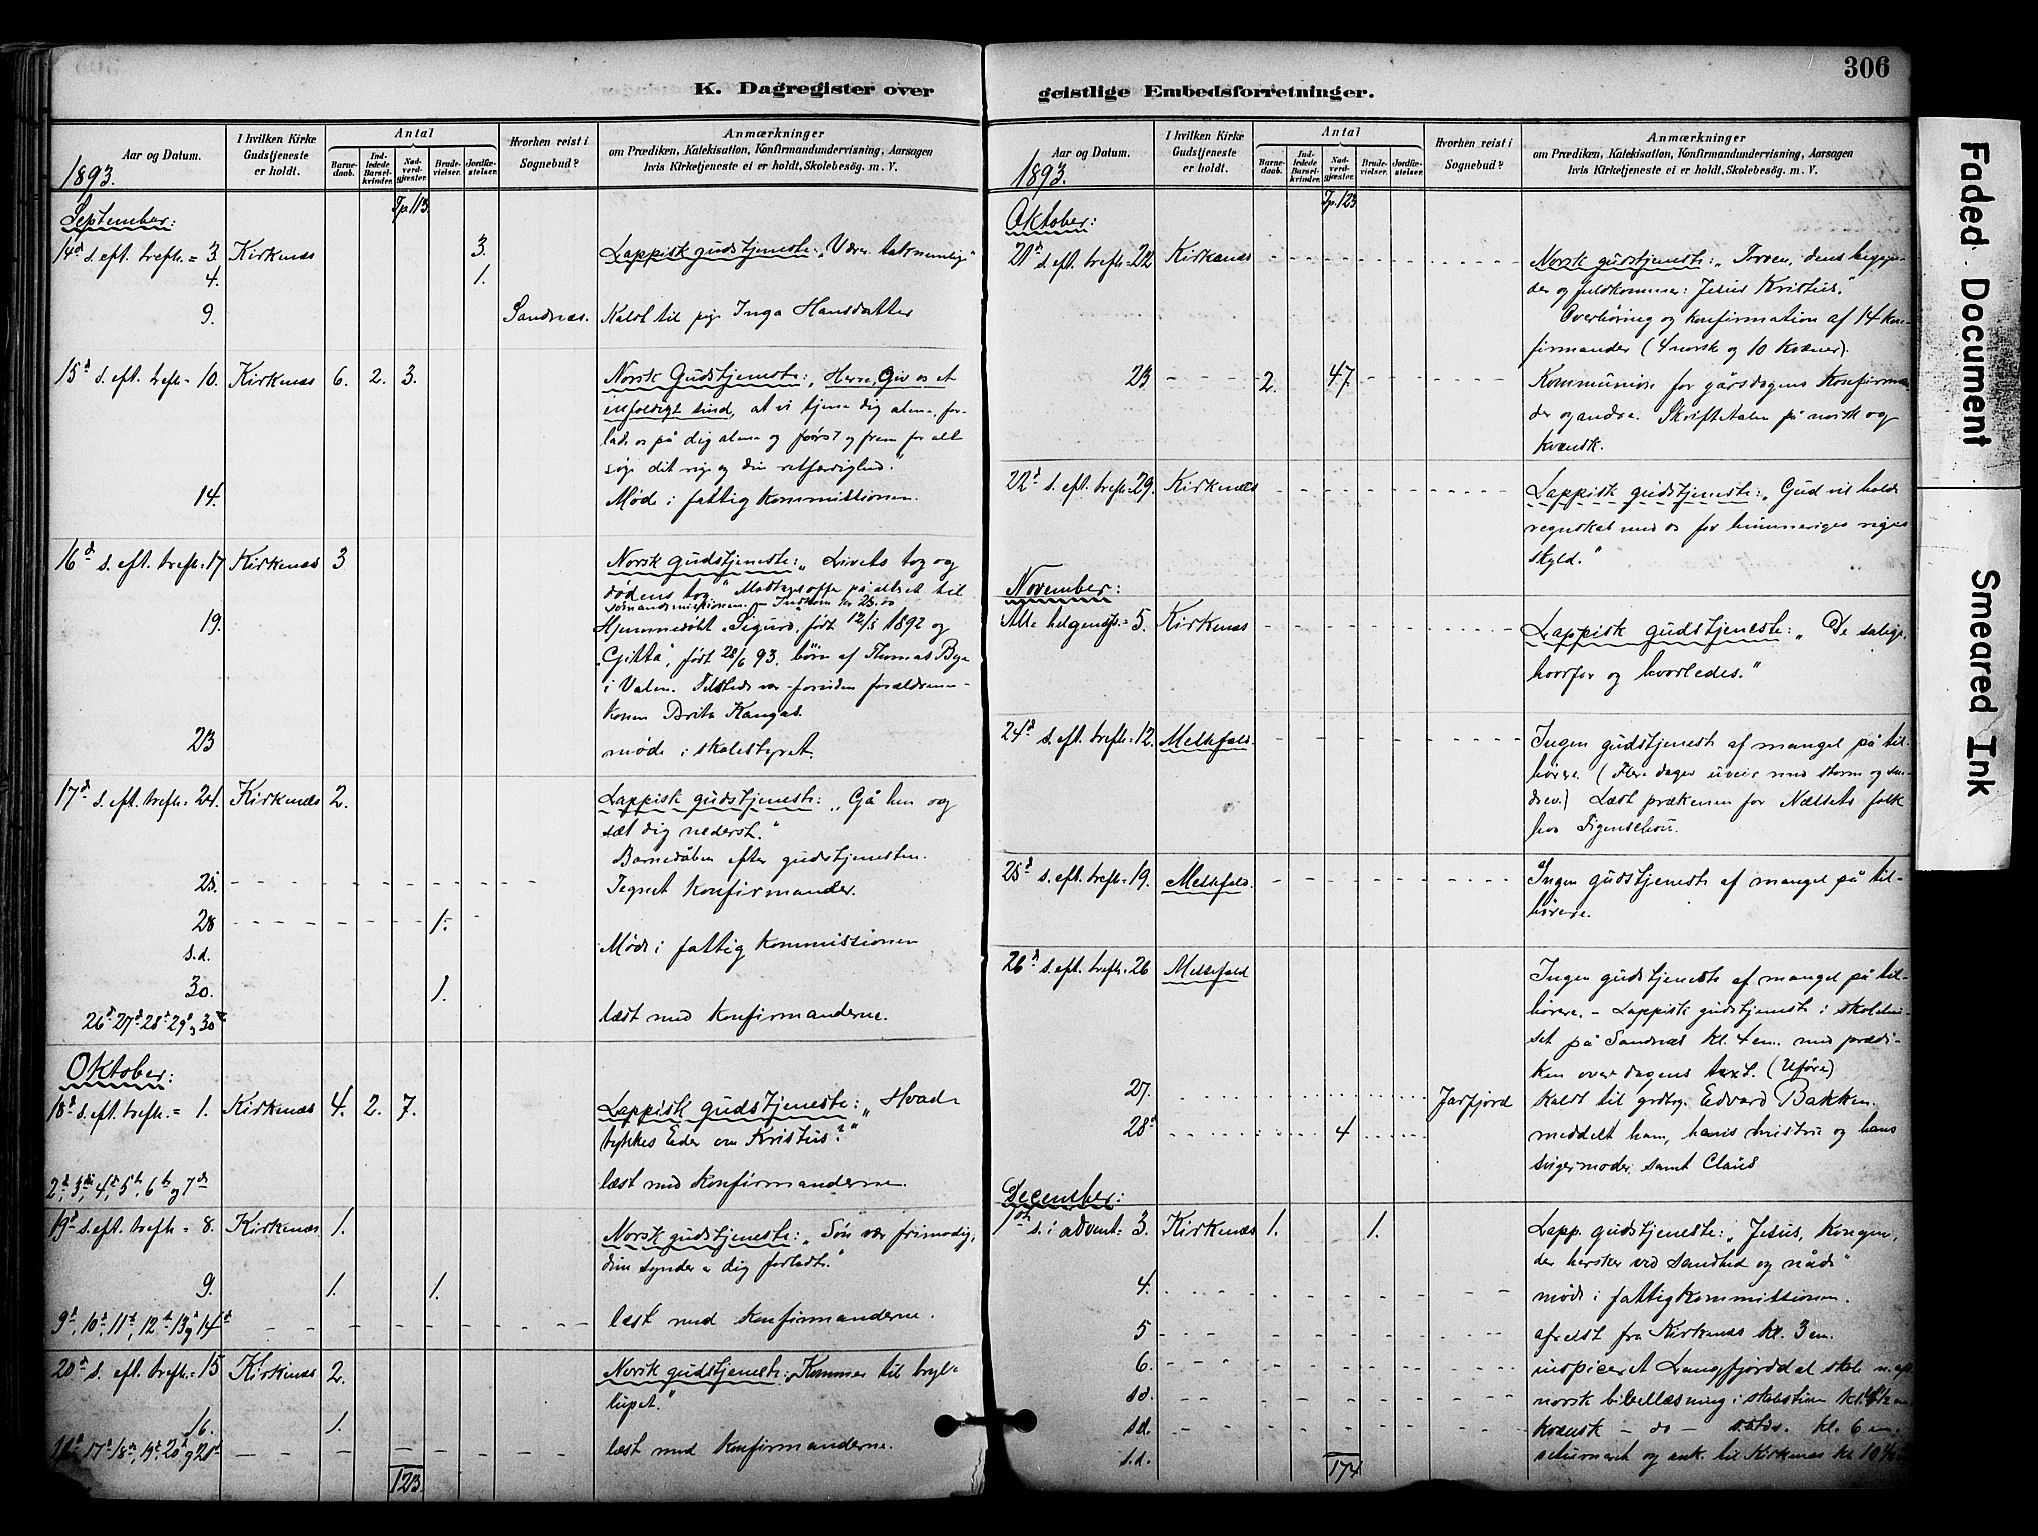 306
K. Dagregister over geistlige Embedsforretninger.
Aar og Datum.
I hvilken Kirke Gudstjeneste er holdt.
Antal
Barnedaab.
Indledede Barselkvinder.
Nadverdgjæster.
Brudevielser.
Jordfæstelser.
Hvorhen reist i Sognebud?
Anmærkninger
om Prædiken, Katekisation, Konfirmandundervisning, Aarsagen
hvis Kirketjeneste ei er holdt, Skolebesøg. m. V.
1893.
Tp. 113.
September:
14d s. eft. trefh. = 3. Kirkenæs 3. Lappisk gudstjeneste: "Værer taknemlige"
4. 1.
9. Sandnæs. Kaldt til pige Inga Hansdatter
15d s. eft. trefh. = 10. Kirkenæs 6. 2. 3. Norsk Gudstjeneste: "Herre, Giv os et
enfoldigt sind, at vi tjene dig alene, for-
lade os på dig alene og først og frem for alt
søge dit rige og din retfærdighed."
14. Møde i fattigkommissionen.
16d s. eft. trefh. = 17 Kirkenæs 3 Norsk gudstjeneste: "Livets tog og
dødens tog" Modtages offer på altret til
sømandsmissionen Indkom kr 25.00
19. Hjemmedøbt "Sigurd, født 12/5 1892 og
"Gitta", født 28/6 93. børn af Thomas Bye
i Valen. Tilstede var foruden forældrene
konen Brita Kangas.
23 møde i skolestyret.
17d s. eft. trefh. = 24. Kirkenæs 2. Lappisk gudstjeneste: "Gå hen og
sæt dig nederst."
Barnedåben efter gudstjenesten.
25. Tegnet konfirmander.
28 1.
s.d. Møde i fattigkommissionen
30. 1.
26d 27d 28d 29d og 30d læst med konfirmanderne.
Oktober:
18d s. eft. trefh. = 1. Kirkenæs 4. 2. 7. Lappisk gudstjeneste: "Hvad
tykkes Eder om Kristus?"
2d, 3die, 4d, 5te, 6te og 7de læst med konfirmanderne.
19d s. eft. trefh. = 8. Kirkenæs 1. Norsk gudstjeneste: "Søn vær frimodig,
dine synder er dig forladte."
9. 1. 1.
9d, 10d, 11te, 12te 13d og 14d læst med konfirmanderne.
20d s. eft. trefh. = 15 Kirkenæs 2. Norsk gudstjeneste: "Kommer til bryl-
lupet."
16. 1.
17d 18d, 19d, 20d og 21d læst med konfirmanderne.
123.
Aar og Datum.
I hvilken Kirke Gudstjeneste er holdt.
Antal
Barnedaab.
Indledede Barselkvinder.
Nadverdgjæster.
Brudevielser.
Jordfæstelser.
Hvorhen reist i Sognebud?
Anmærkninger
om Prædiken, Katekisation, Konfirmandundervisning, Aarsagen
hvis Kirketjeneste ei er holdt, Skolebesøg. m. V.
1893.
Tp. 123
Oktober:
21d s. eft. trefh. = 22 Kirkenæs Norsk gudstjeneste: "Troen, dens begyn-
der og fuldkommer: Jesus Kristus."
Overhøring og konfirmation af 14 kon-
firmander (4 norsk og 10 kvæner).
23 2. 47. Kommunion for gårsdagens konfirman-
der og andre. Skriftetalen på norsk og
kvænsk.
22d s. eft. trefh. = 29. Kirkenæs Lappisk gudstjeneste: "Gud vil holde
regnskab med os for himmeriges riges
skyld."
November:
Alle helgensdg. = 5. Kirkenæs Lappisk gudstjeneste: "De salige,
hvorfor og hvorledes."
24d s. eft. trefh. = 12. Melkefos. Ingen gudstjeneste af mangel på til-
hørere. (Flere dager uveir med storm og sne-
drev.) Læst prækenen for folk
hos Figenschou.
25d s. eft. trefh. = 19. Melkefos. Ingen gudstjeneste af mangel på til-
hørere.
26d s. eft. trefh. = 26 Melkefos Ingen gudstjeneste af mangel på til-
hørere. – Lappisk gudstjeneste i skolehu-
set på Sandnæs kl. 4 em. med prædi-
ken over dagens text. (Uføre)
27. Jarfjord Kaldt til grdbr. Edvard Bakken.
28d 4 meddelt ham, hans hustru og hans
svigermoder, samt Claus
December:
1ste s. i advent = 3. Kirkenæs 1. 1. Lapp. gudstjeneste: "Jesus, kongen,
der hersker ved sandhed og nåde"
4. møde i fattigkommissionen.
5 afreist fra Kirkenæs kl. 3 em.
6. inspiceret Langfjorddal skole
s.d. norsk bibellæsning i skolestuen kl. 4½ em.
s.d. kvænsk – do – sstds. kl. 6 em.
s.d. returneret og ank. til Kirkenæs kl 10½
174
Faded Document
Smeared Ink